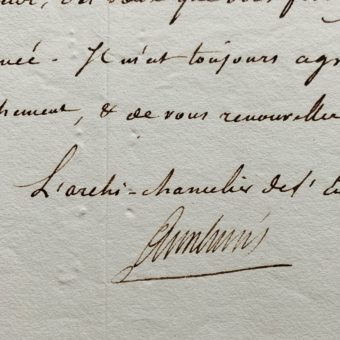 que vous
née - Il m'est toujours agr
chement, & de vous renouveller
L'archi-chancelier de l'E
Cambacérès